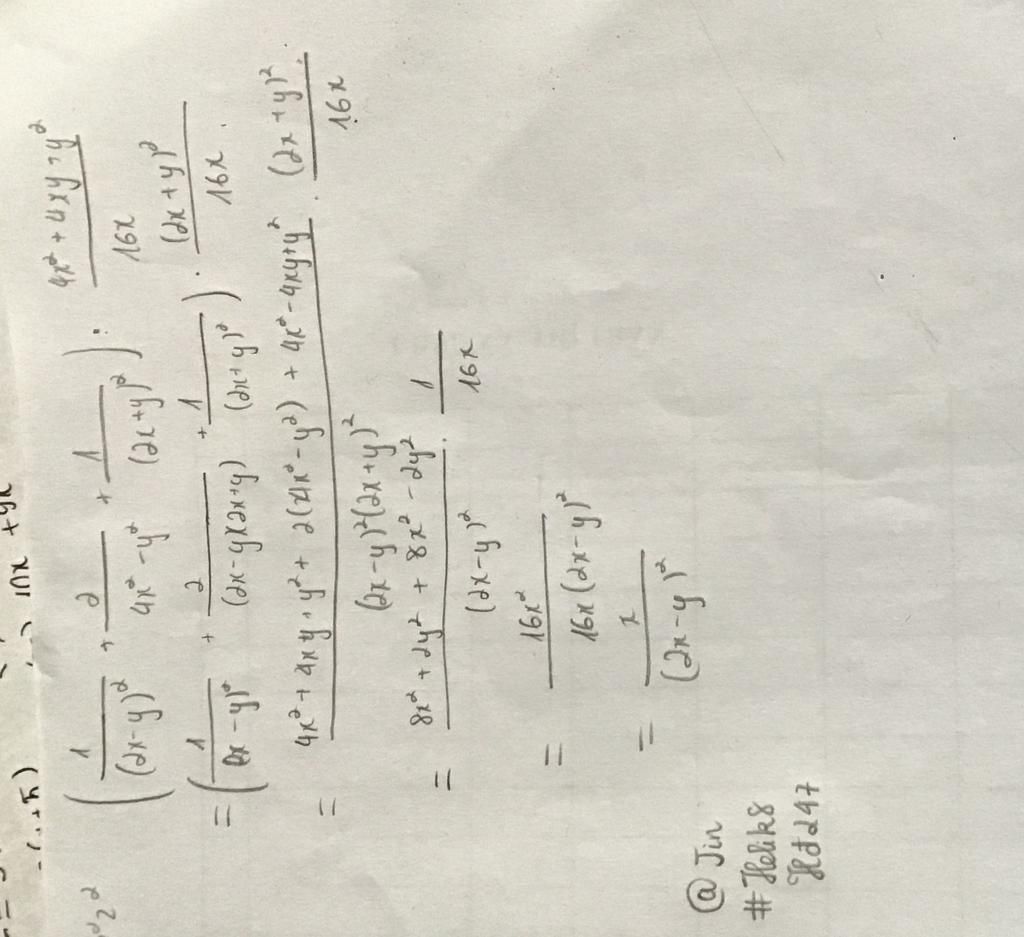 (1/(2x-y)² + 2/(4x²-y²) + 1/(2x+y)²) · (4x²+4xy+y²)/16x
= (1/(2x-y)² + 2/((2x-y)(2x+y)) + 1/(2x+y)²) · (2x+y)²/16x
= (4x²+4xy+y²+2(4x²-y²)+4x²-4xy+y²)/((2x-y)²(2x+y)²) · (2x+y)²/16x
= (8x²+2y²+8x²-2y²)/(2x-y)² · 1/16x
= 16x²/(16x(2x-y)²)
= x/(2x-y)²
@Jin
#Helik8
Hđ247